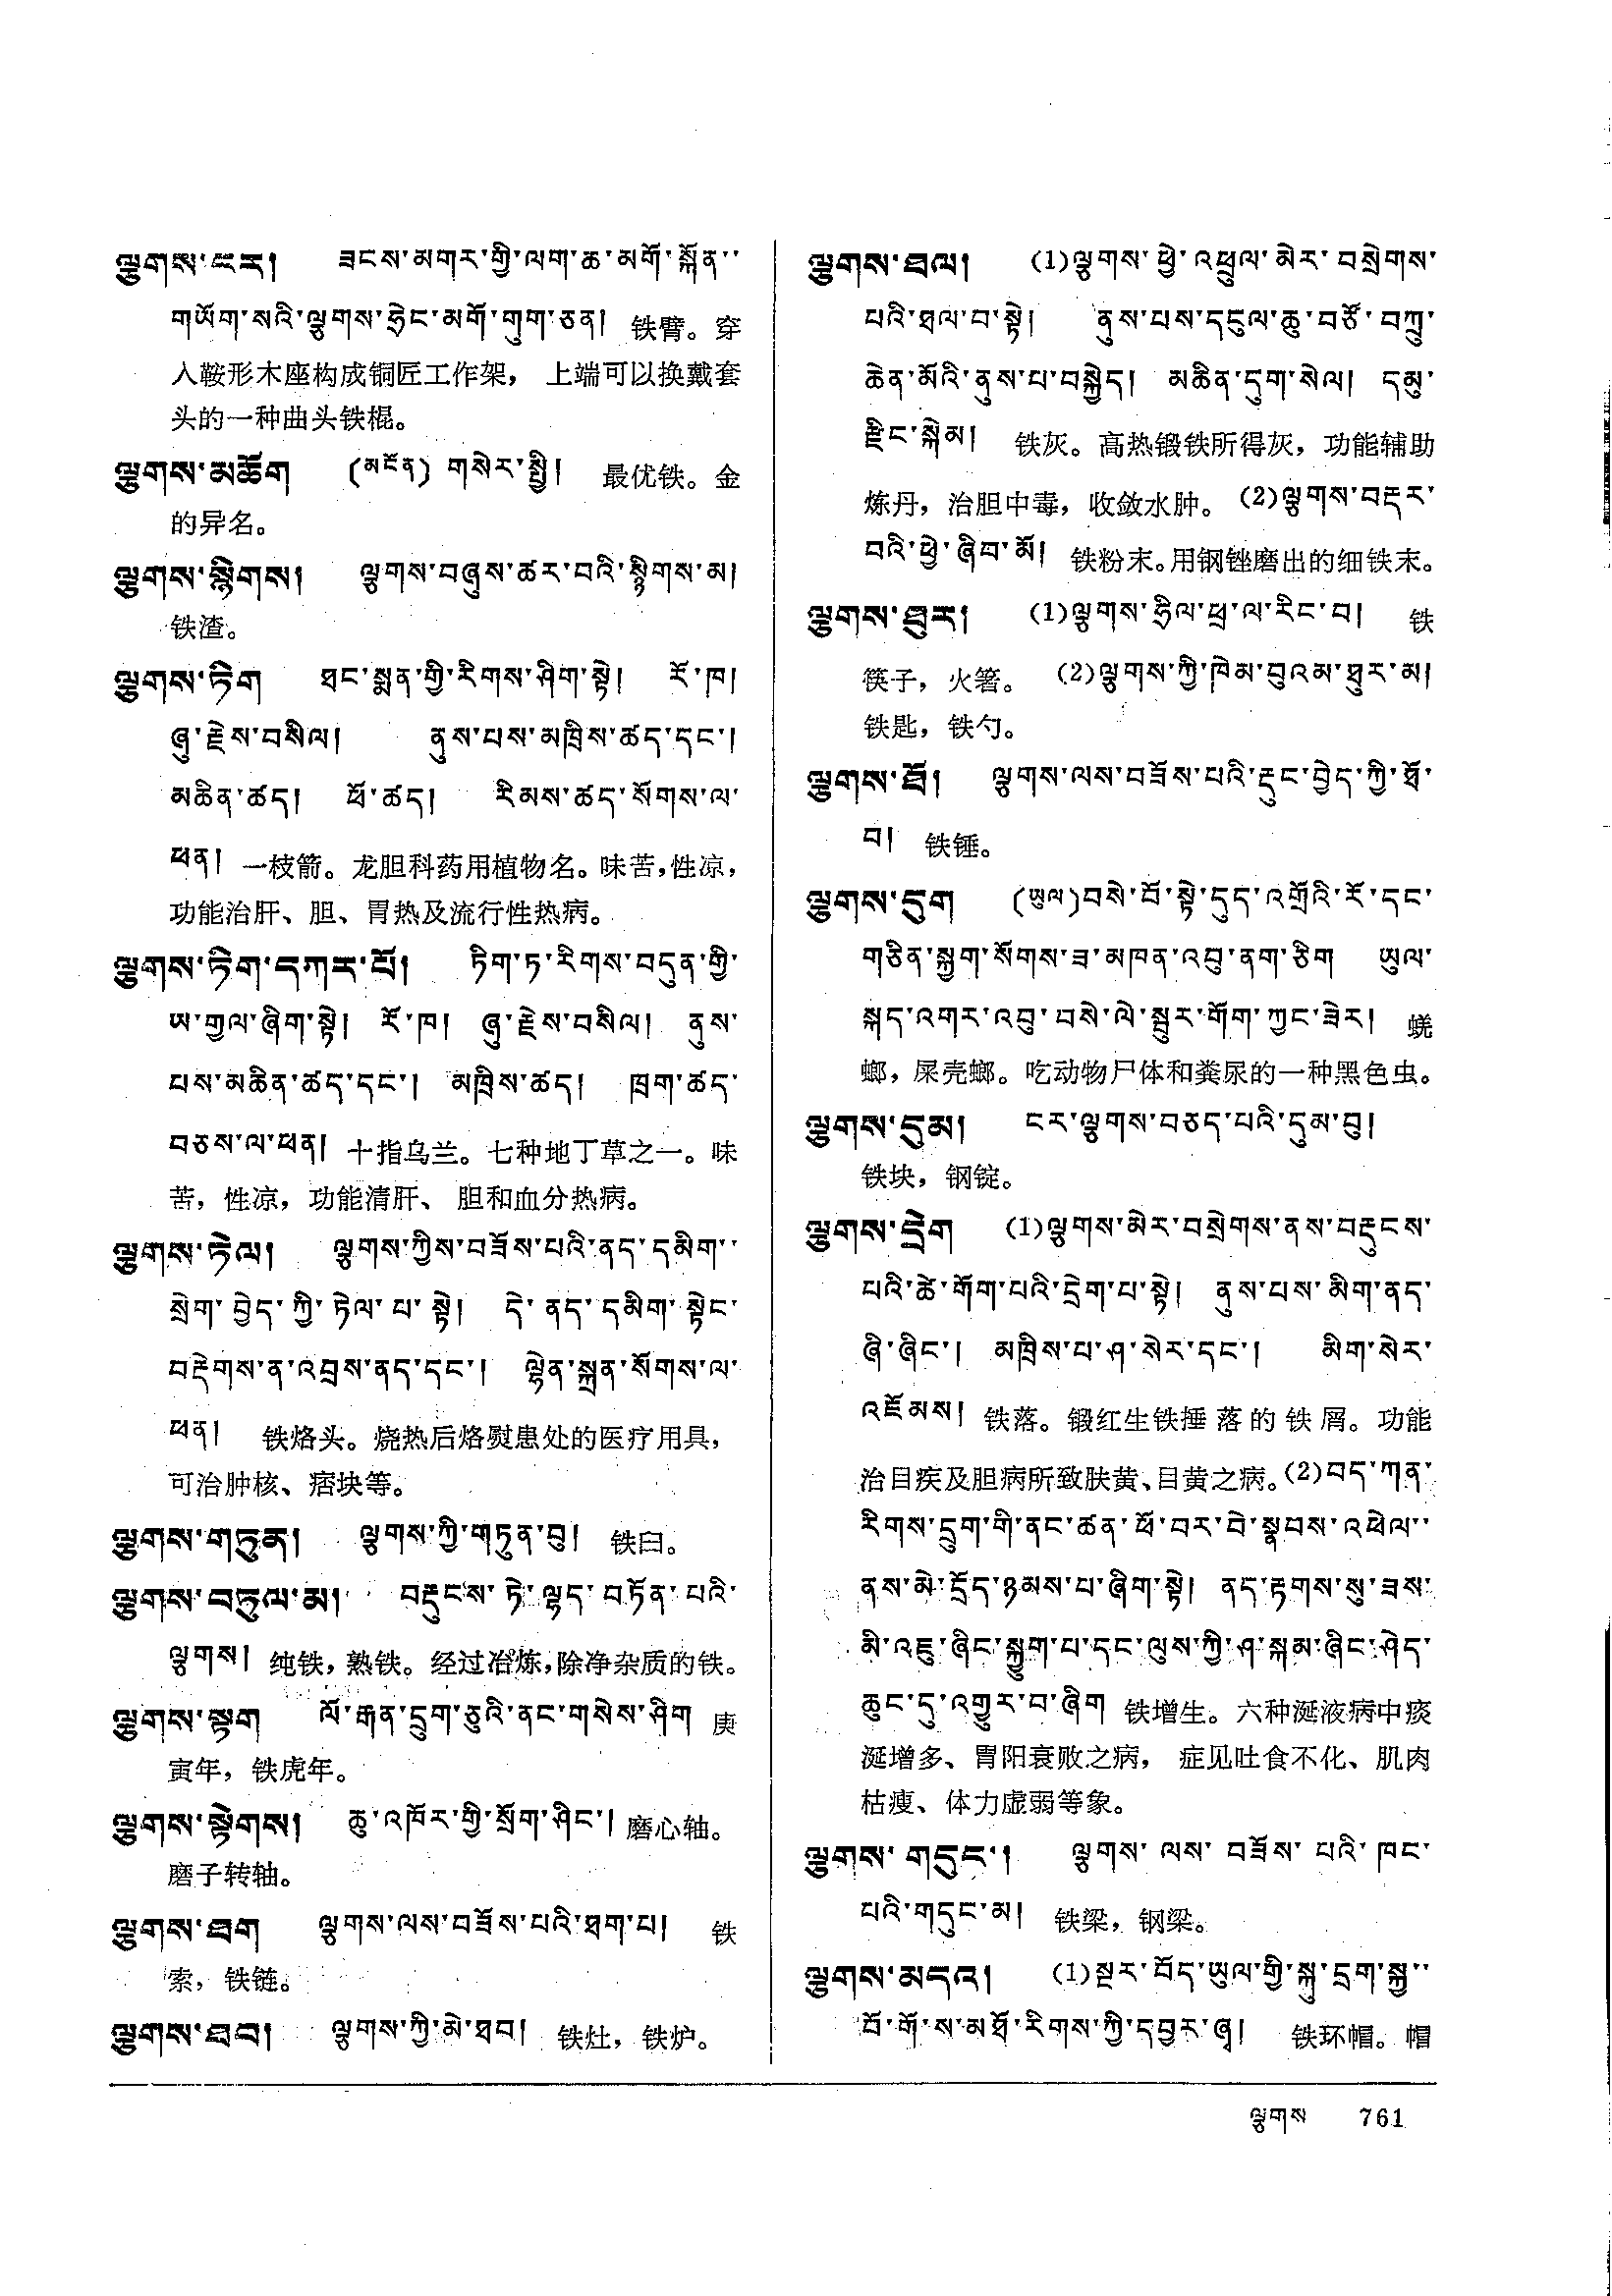 ལྕགས་ངར། ཟངས་མགར་གྱི་ལག་ཆ་མགོ་སྐོན་་
གཡོག་སའི་ལྕགས་ཧྲེང་མགོ་གུག་ཅན། 铁臂。穿
入鞍形木座构成铜匠工作架， 上端可以换戴套
头的一种曲头铁棍。
ལྕགས་མཆོག (མངོན) གསེར་སྤྱི། 最优铁。金
的异名。
ལྕགས་སྙིགས། ལྕགས་བཞུས་ཚར་བའི་སྙིགས་མ།
铁渣。
ལྕགས་ཏིག ཐང་སྨན་གྱི་རིགས་ཤིག་སྟེ། རོ་ཁ།
ཞུ་རྗེས་བསིལ། ནུས་པས་མཁྲིས་ཚད་དང་།
མཆིན་ཚད། ཕོ་ཚད། རིམས་ཚད་སོགས་ལ་
ཕན། 一枝箭。龙胆科药用植物名。味苦，性凉，
功能治肝、胆、胃热及流行性热病。
ལྕགས་ཏིག་དཀར་པོ། ཏིག་ཏ་རིགས་བདུན་གྱི་
ཨ་གྱལ་ཞིག་སྟེ། རོ་ཁ། ཞུ་རྗེས་བསིལ། ནུས་
པས་མཆིན་ཚད་དང་། མཁྲིས་ཚད། ཁྲག་ཚད་
བཅས་ལ་ཕན། 十指乌兰。七种地丁草之一。味
苦，性凉，功能清肝、 胆和血分热病。
ལྕགས་ཏེལ། ལྕགས་ཀྱིས་བཟོས་པའི་ནད་དམིག་་
སྲེག་བྱེད་ཀྱི་ཏེལ་པ་སྟེ། དེ་ནད་དམིག་སྟེང་
བརྡེགས་ན་འབྲས་ནད་དང་། ལྷེན་སྐྲན་སོགས་ལ་
ཕན། 铁烙头。烧热后烙熨患处的医疗用具，
可治肿核、痞块等。
ལྕགས་གཏུན། ལྕགས་ཀྱི་གཏུན་བུ། 铁臼。
ལྕགས་བཏུལ་མ། བརྡུངས་ཏེ་ལྷད་བཏོན་པའི་
ལྕགས། 纯铁，熟铁。经过冶炼，除净杂质的铁。
ལྕགས་སྟག ལོ་རྒན་དྲུག་ཅུའི་ནང་གསེས་ཤིག 庚
寅年，铁虎年。
ལྕགས་སྟེགས། ཆུ་འཁོར་གྱི་སྲོག་ཤིང་། 磨心轴。
磨子转轴。
ལྕགས་ཐག ལྕགས་ལས་བཟོས་པའི་ཐག་པ། 铁
索，铁链。
ལྕགས་ཐབ། ལྕགས་ཀྱི་མེ་ཐབ། 铁灶，铁炉。
ལྕགས་ཐལ། (1)ལྕགས་ཕྱེ་འཕྲུལ་མེར་བསྲེགས་
པའི་ཐལ་བ་སྟེ། ནུས་པས་དངུལ་ཆུ་བཙོ་བཀྲུ་
ཆེན་མོའི་ནུས་པ་བསྐྱེད། མཆིན་དུག་སེལ། དམུ་
རྫིང་སྐེམ། 铁灰。高热锻铁所得灰，功能辅助
炼丹，治胆中毒，收敛水肿。(2)ལྕགས་བརྡར་
བའི་ཕྱེ་ཞིབ་མོ། 铁粉末。用钢锉磨出的细铁末。
ལྕགས་ཐུར། (1)ལྕགས་ཧྲིལ་ཕྲ་ལ་རིང་བ། 铁
筷子，火箸。 (2)ལྕགས་ཀྱི་ཁེམ་བུའམ་ཐུར་མ།
铁匙，铁勺。
ལྕགས་ཐོ། ལྕགས་ལས་བཟོས་པའི་རྡུང་བྱེད་ཀྱི་ཐོ་
བ། 铁锤。
ལྕགས་དུག (ཡུལ)བསེ་པོ་སྟེ་དུད་འགྲོའི་རོ་དང་
གཅིན་སྐྱག་སོགས་ཟ་མཁན་འབུ་ནག་ཅིག ཡུལ་
སྐད་འགར་འབུ་བསེ་ལེ་སྦུར་གོག་ཀྱང་ཟེར། 蜣
螂，屎壳螂。吃动物尸体和粪尿的一种黑色虫。
ལྕགས་དུམ། ངར་ལྕགས་བཅད་པའི་དུམ་བུ།
铁块，钢锭。
ལྕགས་དྲེག (1)ལྕགས་མེར་བསྲེགས་ནས་བརྡུངས་
པའི་ཚེ་གོག་པའི་དྲེག་པ་སྟེ། ནུས་པས་མིག་ནད་
ཞི་ཞིང་། མཁྲིས་པ་ཤ་སེར་དང་། མིག་སེར་
འཇོམས། 铁落。锻红生铁捶落的铁屑。功能
治目疾及胆病所致肤黄、目黄之病。(2)བད་ཀན་
རིགས་དྲུག་གི་ནང་ཚན་ཕོ་བར་བེ་སྣབས་འཕེལ་་
ནས་མེ་དྲོད་ཉམས་པ་ཞིག་སྟེ། ནད་རྟགས་སུ་ཟས་
མི་འཇུ་ཞིང་སྐྱུག་པ་དང་ལུས་ཀྱི་ཤ་སྐམ་ཞིང་ཤེད་
ཆུང་དུ་འགྱུར་བ་ཞིག 铁增生。六种涎液病中痰
涎增多、胃阳衰败之病， 症见吐食不化、肌肉
枯瘦、体力虚弱等象。
ལྕགས་གདུང་། ལྕགས་ལས་བཟོས་པའི་ཁང་
པའི་གདུང་མ། 铁梁，钢梁。
ལྕགས་མདའ། (1)སྔར་བོད་ཡུལ་གྱི་སྐུ་དྲག་སྐྱ་་
བོ་གོ་ས་མཐོ་རིགས་ཀྱི་དབྱར་ཞྭ། 铁环帽。帽
ལྕགས 761